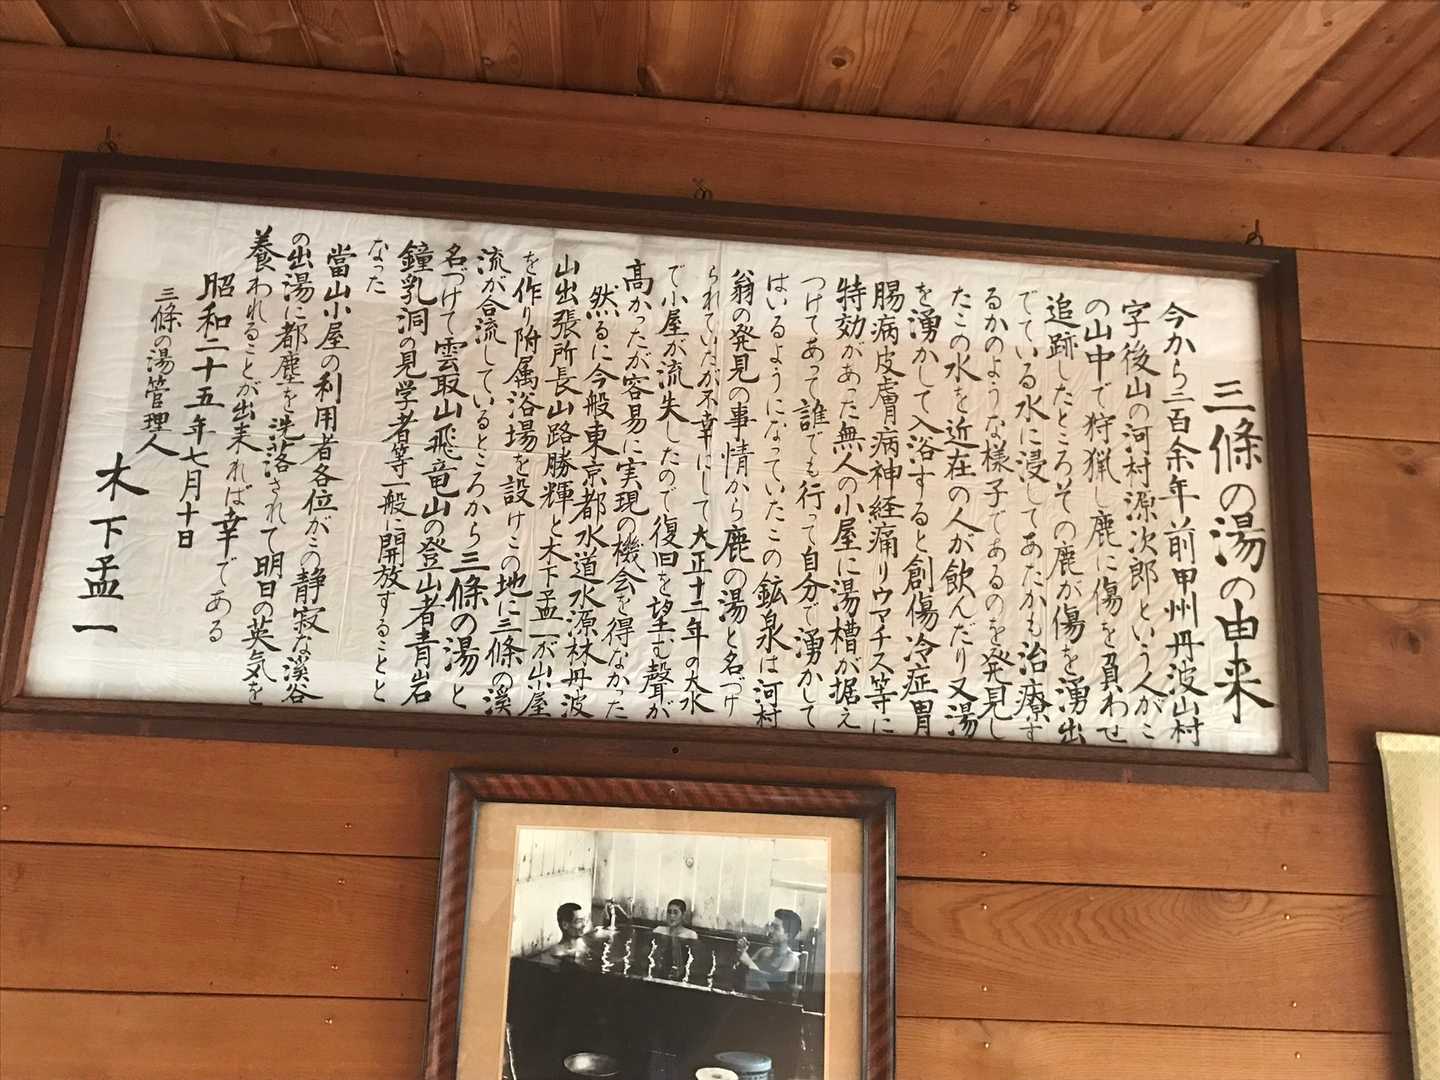 三條の湯の由来
今から三百余年前甲州丹波山村
字後山の河村源次郎という人がこ
の山中で狩猟し鹿に傷を負わせ
追跡したところその鹿が傷を湧出
でている水に浸してあたかも治療す
るかのような様子であるのを発見し
たこの水を近在の人が飲んだり又湯
を湧かして入浴すると創傷冷症胃
腸病皮膚病神経痛リウマチス等に
特効があった無人の小屋に湯槽が据え
つけてあって誰でも行って自分で湧かして
はいるようになっていたこの鉱泉は河村
翁の発見の事情から鹿の湯と名づけ
られていたが不幸にして大正十二年の大水
で小屋が流失したので復旧を望む聲が
高かったが容易に実現の機会を得なかった
然るに今般東京都水道水源林丹波
山出張所長山路勝輝と木下孟一が小屋
を作り附属浴場を設けこの地に三條の溪
流が合流しているところから三條の湯と
名づけて雲取山飛竜山の登山者青岩
鐘乳洞の見学者等一般に開放することと
なった
當山小屋の利用者各位がこの静寂な溪谷
の出湯に都塵を洗落されて明日の英気を
養われることが出来れば幸である
昭和二十五年七月十日
三條の湯管理人
木下孟一